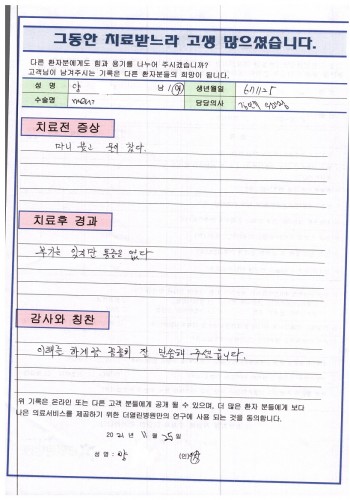 그동안 치료받느라 고생 많으셨습니다.
다른 환자분에게도 힘과 용기를 나누어 주시겠습니까?
고객님이 남겨주시는 기록은 다른 환자분들의 희망이 됩니다.
성 명 양 남 / 여 생년월일 671125
수술명 담당의사
치료전 증상
다니 붓고
치료후 경과
부기는 있지만 통증은 없다
감사와 칭찬
이해를 하게끔 꼼꼼히 잘 말씀해 주셨습니다.
위 기록은 온라인 또는 다른 고객 분들에게 공개 될 수 있으며, 더 많은 환자 분들에게 보다
나은 의료서비스를 제공하기 위한 더열린병원만의 연구에 사용 되는 것을 동의합니다.
2021 년 11 월 25 일
성 명 : 양 (인)